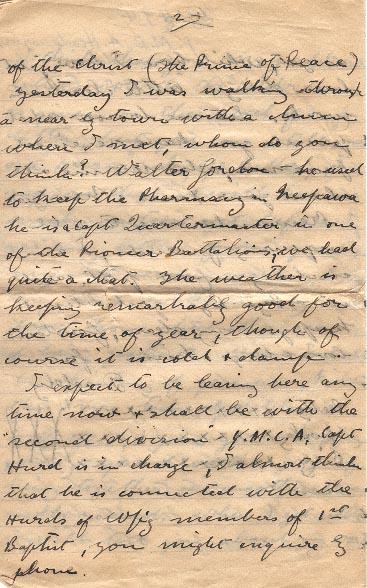 2
of the Christ (the Prince of Peace)
yesterday I was walking through
a near by town with a chum
where I met, whom do you
think? Walter Gordon - he used
to keep the Pharmacy in Neepawa
he is a Capt Quartermaster in one
of the Pioneer Battalions, we had
quite a chat. The weather is
keeping remarkably good for
the time of year, though of
course it is cold & damp.
I expect to be leaving here any
time now & shall be with the
"second division" Y.M.C.A. Capt
Hurd is in charge, I almost think
that he is connected with the
Hurds of Wp'g members of 1st
Baptist, you might enquire by
phone.